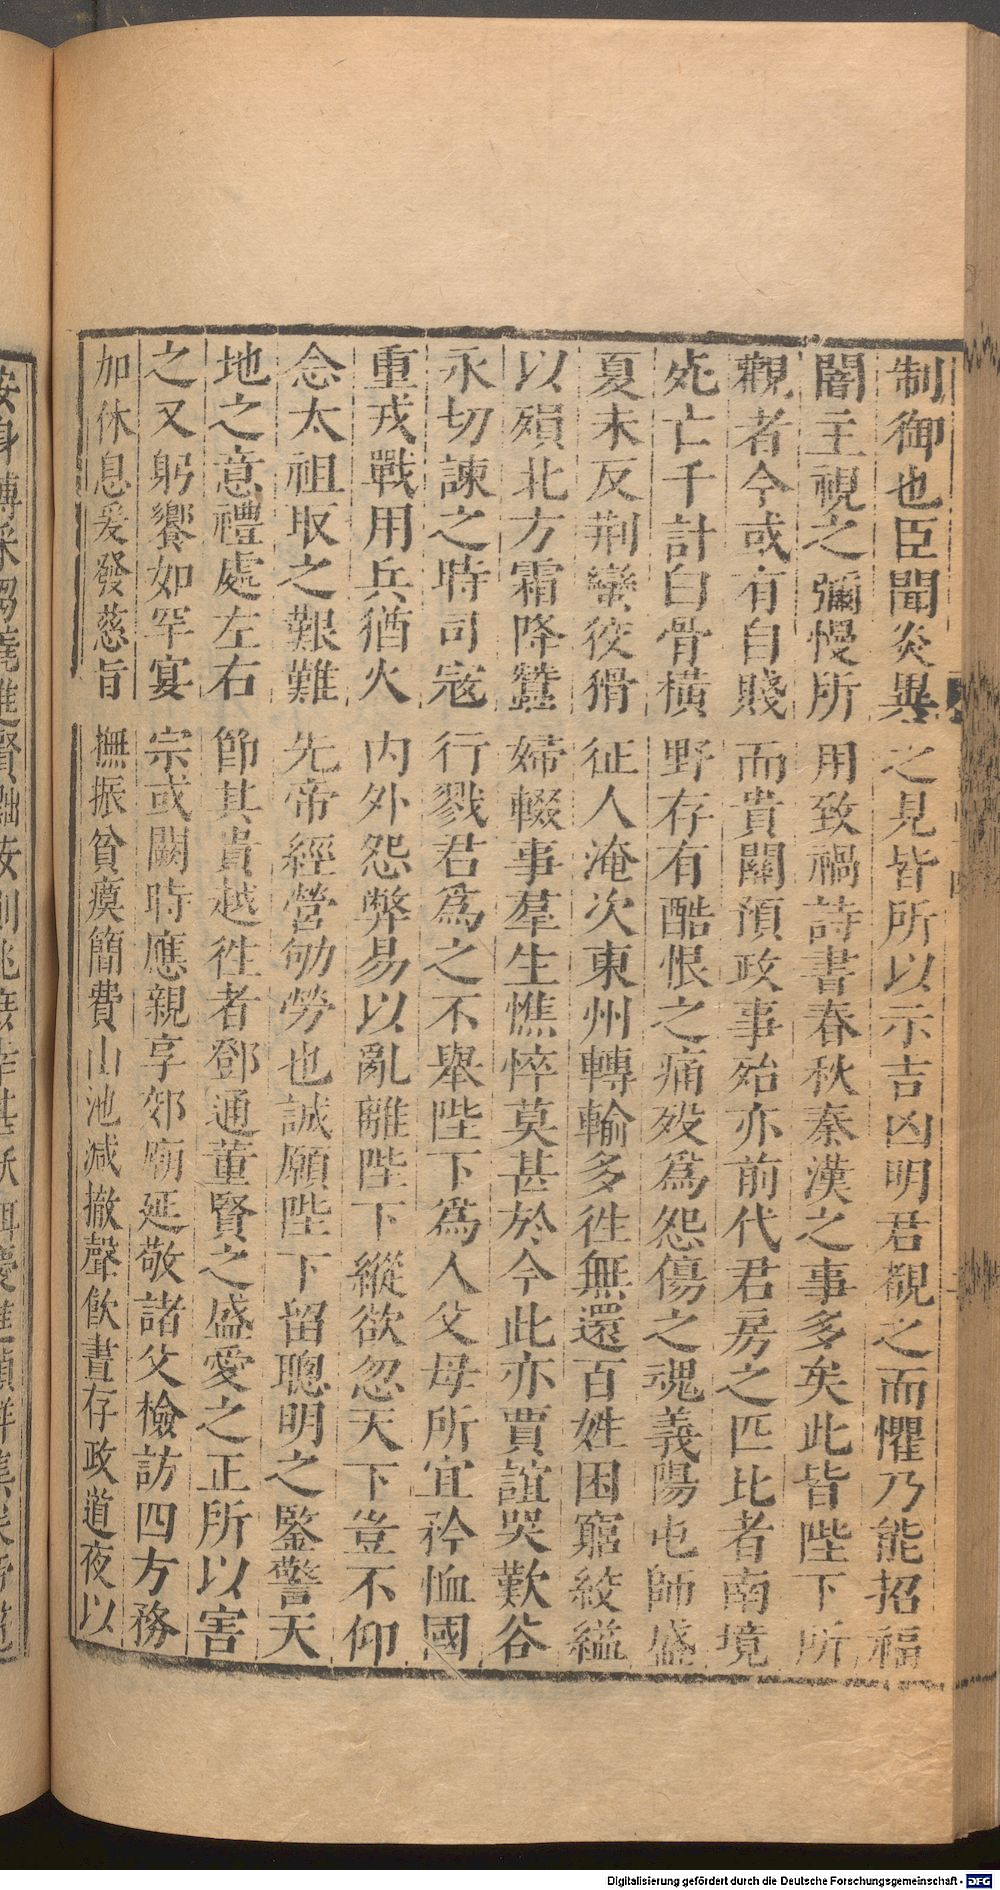 制御也臣聞災異之見皆所以示吉凶明君覩之而懼乃能招福
闇主視之彌慢所用致禍詩書春秋秦漢之事多矣此皆陛下所
觀者今或有自賤而貴關預政事殆亦前代君房之匹比者南境
死亡千計白骨橫野存有酷恨之痛歿爲怨傷之魂義陽屯師盛
夏未反荆蠻狡猾征人淹次東州轉輸多徃無還百姓困窮絞縊
以殞北方霜降蠶婦輟事羣生憔悴莫甚於今此亦賈誼哭歎谷
永切諫之時司寇行戮君爲之不舉陛下爲人父母所宜矜恤國
重戎戰用兵猶火内外怨弊易以亂離陛下縱欲忽天下豈不仰
念太祖取之艱難先帝經營劬勞也誠願陛下留聰明之鑒警天
地之意禮處左右節其貴越徃者鄧通董賢之盛愛之正所以害
之又躬饗如罕宴宗或闕時應親享郊廟延敬諸父檢訪四方務
加休息爰發慈旨撫振貧瘼簡費山池減撤聲飲晝存政道夜以
Digitalisierung gefördert durch die Deutsche Forschungsgemeinschaft - DFG